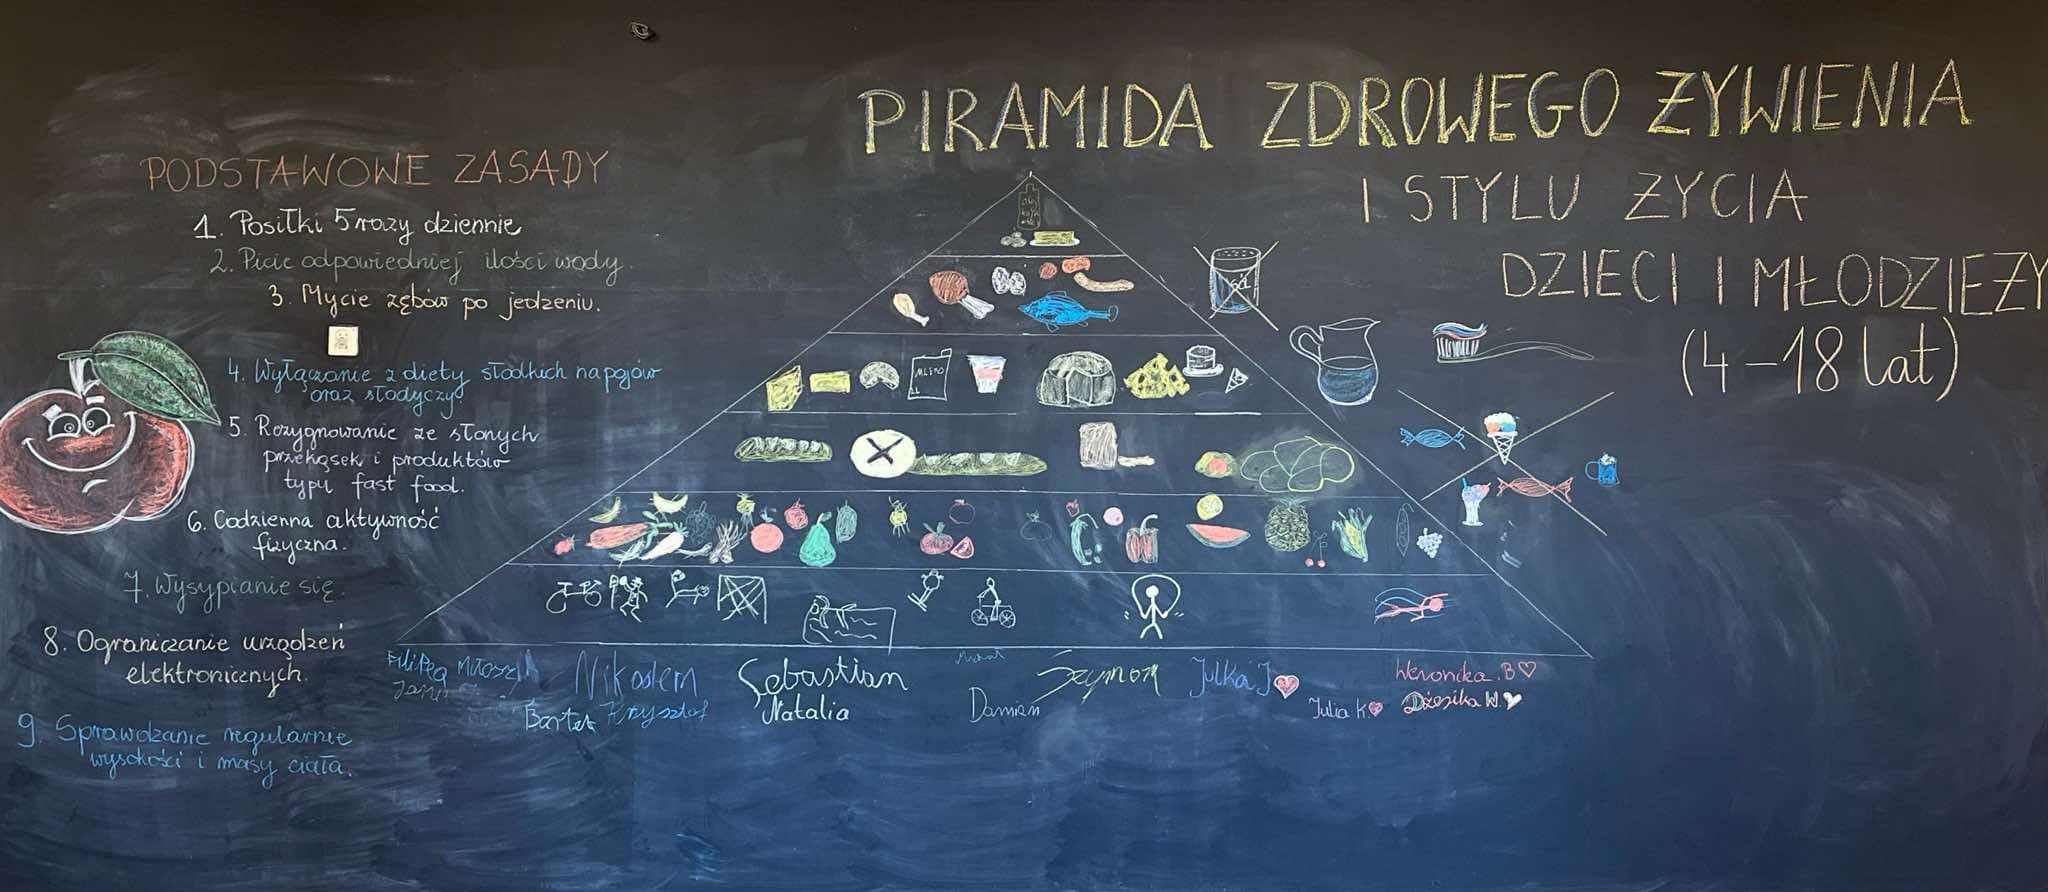 PIRAMIDA ZDROWEGO ŻYWIENIA
I STYLU ŻYCIA
DZIECI I MŁODZIEŻY
(4-18 lat)
PODSTAWOWE ZASADY
1. Posiłki 5 razy dziennie
2. Picie odpowiedniej ilości wody.
3. Mycie zębów po jedzeniu.
4. Wyłączanie z diety słodkich napojów
oraz słodyczy
5. Rezygnowanie ze słonych
przekąsek i produktów
typu fast food.
6. Codzienna aktywność
fizyczna.
7. Wysypianie się.
8. Ograniczanie urządzeń
elektronicznych.
9. Sprawdzanie regularnie
wysokości i masy ciała.
MLEKO
1L
Nikodem
Sebastian
Szymon
Julka J
Weronika .B
Bartek Krzysztof
Natalia
Damian
Julia K.
Dżesika W.